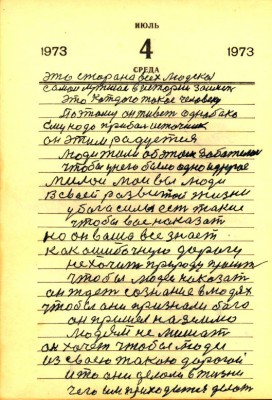 ИЮЛЬ
1973 4 1973
СРЕДА
это старана всех людска
самои лутшие в истории
Это каждого такое человек
Поэтому он живет однобако
Ему надо источник
он этим радуется
люди жили об этом
чтобы у него было одно и другое
милои мои вы люди
В своей развитой жизни
у бога силы ест такие
чтобы вас наказат
но он ваша все знает
как ошибочную дорогу
не хочит природу
чтобы людей наказат
он ждет сознание в людях
чтобы они признали его
он пришел на землю
людям не мишат
он хочет чтобы люди
из своею такою дорогой
и то они делали в жизни
чего им приходится делат